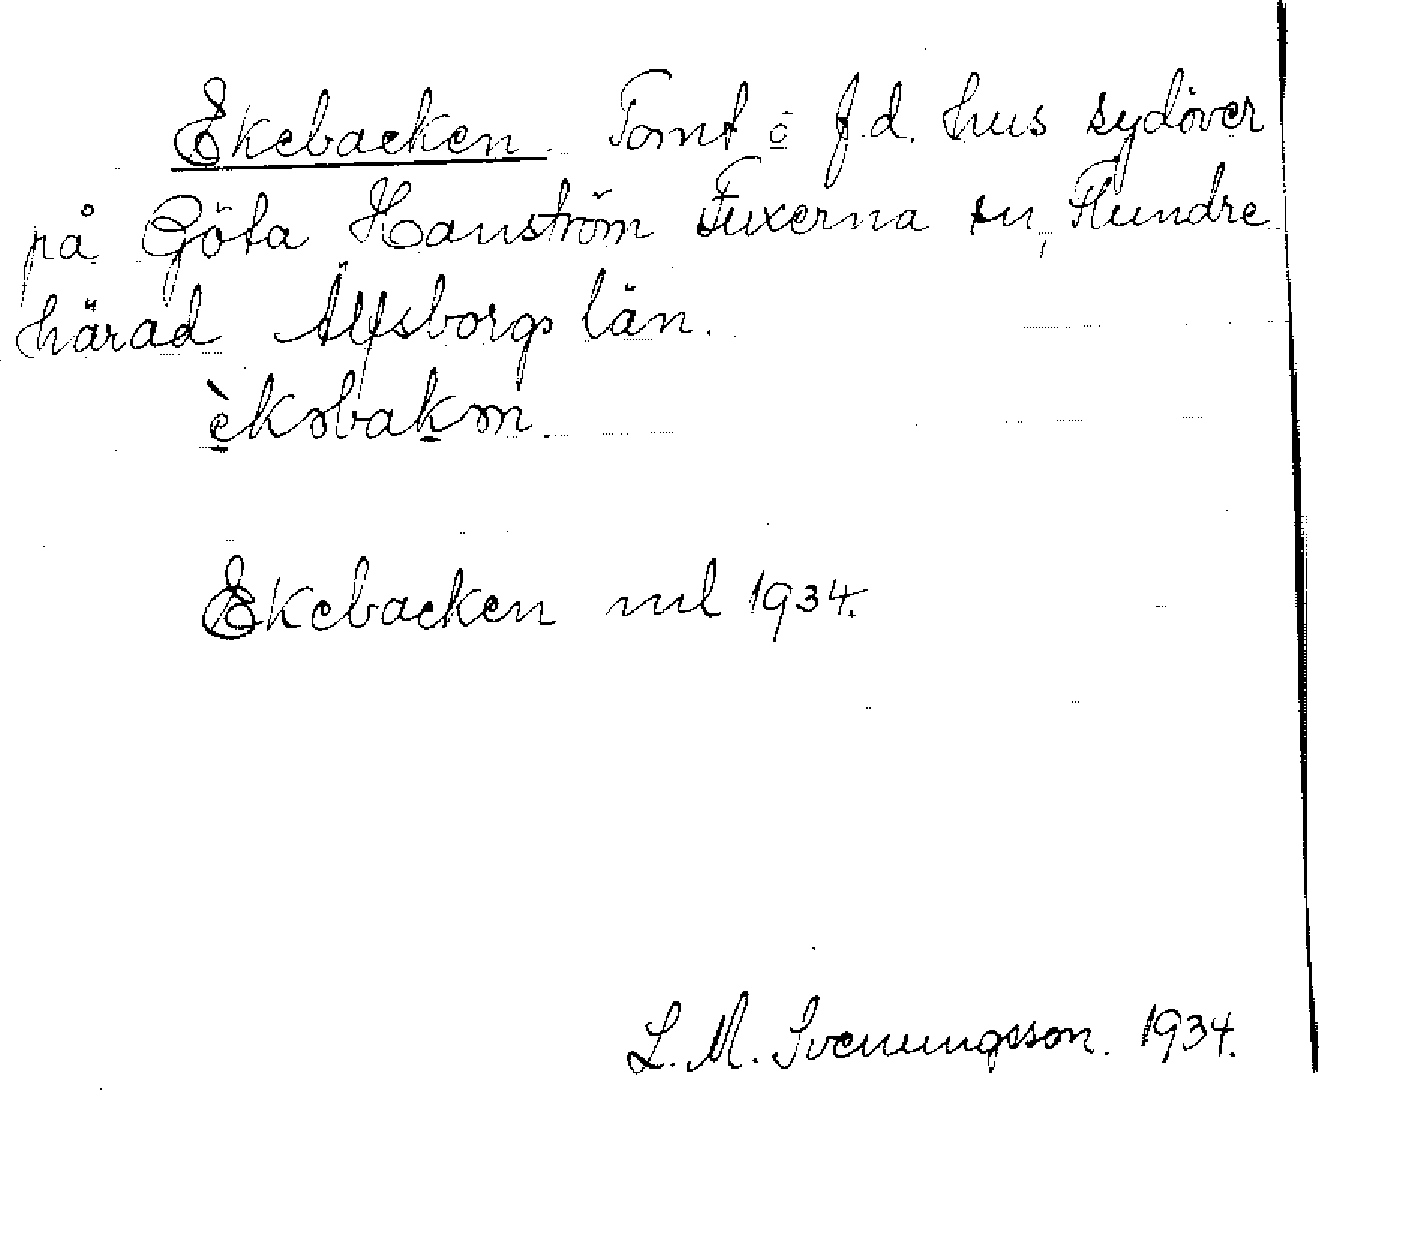 Ekebacken Tomt o f.d. hus sydöver
på Göta Hanström Fuxerna sn, Flundre
härad Älfsborgs län.
Ekebacken ml 1934.
L. M. Svenungsson. 1934.